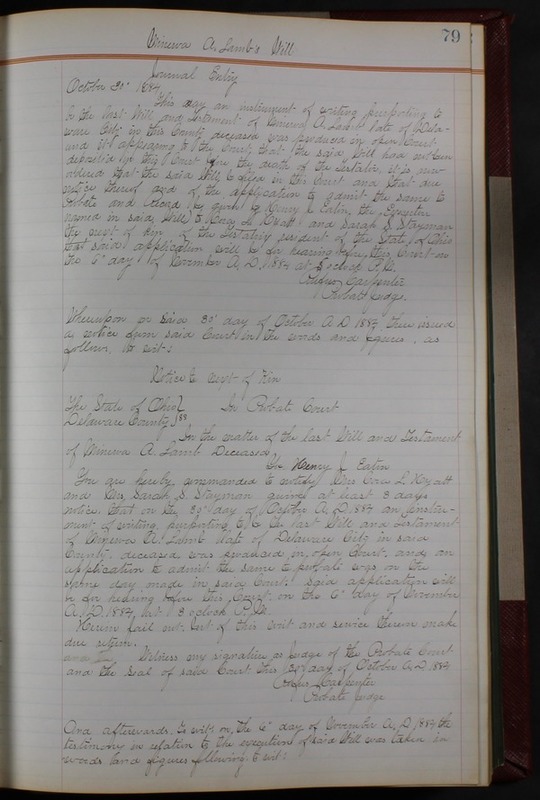 79
Minerva A. Lamb's Will
Journal Entry
October 30" 1884
This day an instrument of writing purporting to
be the last Will and Testament of Minerva A. Lamb late of Dela-
ware City in this County deceased was produced in open Court
and it appearing to the Court, that the said Will had not been
deposited in this Court the death of the Testator, it is now
ordered that the said Will be filed in this Court and that due
notice thereof and of the application to admit the same to
Probate and Record be given to Henry J. Eaton, the Executor
named in said Will to L. Hyatt and Sarah S. Stayman
the next of kin of the Testatrix resident of the State of Ohio
that said application will be for hearing before this Court on
the 6" day of November A.D. 1884 at o'clock P.M.
Carpenter
Probate Judge.
Whereupon on said 30" day of October A.D. 1884 there issued
a notice from said Court in the words and figures, as
follows, to wit:
Notice to next of Kin
The State of Ohio }
Delaware County } ss In Probate Court
In the matter of the last Will and Testament
of Minerva A. Lamb Deceased
To Henry J. Eaton
You are hereby commanded to notify Mrs L Hyatt
and Mrs. Sarah S. Stayman giving at least 3 days
notice, that on the 30" day of October A.D. 1884 an instru-
ment of writing, purporting to be the last Will and Testament
of Minerva A. Lamb late of Delaware City in said
County, deceased was produced in open Court, and an
application to admit the same to probate was on the
same day made in said Court. Said application will
be for hearing before this Court, on the 6" day of November
A.D. 1884, at o'clock P.M.
Herein fail not, but of this writ and service thereon make
due return.
Witness my signature as Judge of the Probate Court
and the seal of said Court, this 30" day of October A.D. 1884
Carpenter
Probate Judge
And afterwards, to wit: on the 6" day of November A.D. 1884 the
testimony in relation to the execution of said Will was taken in
words and figures following to wit: